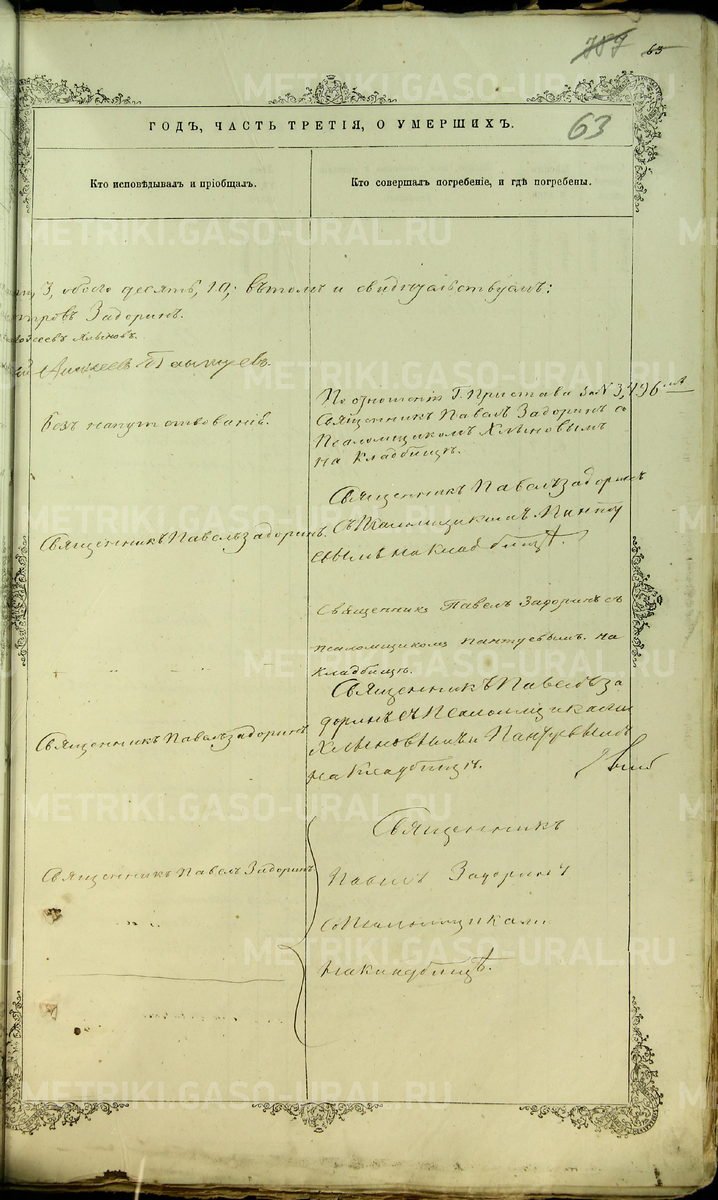 63
63
ГОДЪ, ЧАСТЬ ТРЕТІЯ, О УМЕРШИХЪ.
Кто исповѣдывалъ и пріобщалъ.
Кто совершалъ погребеніе, и гдѣ погребены.
3, обоего десять, 10; въ томъ и свидѣтельствуемъ:
Задоринъ.
Хлыновъ.
Безъ напутствованія.
По отношенію Г. Пристава за N 3,496
Священникъ Павелъ Задоринъ съ
Псаломщикомъ Хлыновымъ
на Кладбищѣ.
Священникъ Павелъ Задоринъ.
Священникъ Павелъ Задоринъ
съ Псаломщикомъ Панту
евымъ на кладбищѣ.
Священникъ Павелъ Задоринъ съ
псаломщикомъ Пантуевымъ. на
Кладбищѣ.
Священникъ Павелъ Задоринъ
Священникъ Павелъ За
доринъ съ Псаломщиками
Хлыновымъ и Пантуевымъ
на Кладбищѣ.
Священникъ Павелъ Задоринъ
Священникъ
Павелъ Задоринъ
со Псаломщиками
на кладбищѣ.
METRIKI.GASO-URAL.RU